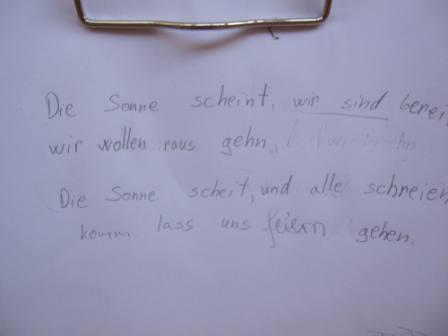 Die Sonne scheint, wir sind berei
wir wollen raus gehn,
Die Sonne scheit, und alle schreien
komm lass uns feiern gehen.